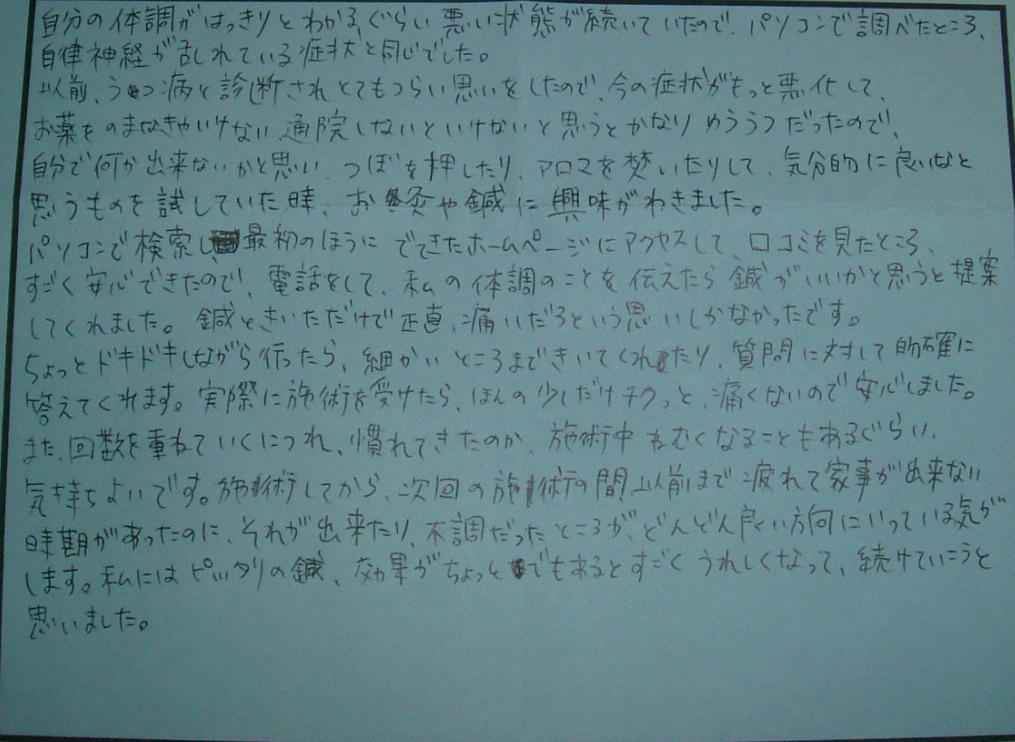 自分の体調がはっきりとわかるぐらい悪い状態が続いていたので、パソコンで調べたところ、
自律神経が乱れている症状と同じでした。
以前、うつ病と診断されとてもつらい思いをしたので、今の症状がもっと悪化して、
お薬をのまなきゃいけない、通院しないといけないと思うとかなりゆううつだったので、
自分で何か出来ないかと思い、つぼを押したり、アロマを焚いたりして、気分的に良いなと
思うものを試していた時、お灸や鍼に興味がわきました。
パソコンで検索し最初のほうにでてきたホームページにアクセスして、口コミを見たところ、
すごく安心できたので、電話をして、私の体調のことを伝えたら鍼がいいかと思うと提案
してくれました。鍼ときいただけで正直、痛いだろという思いしかなかったです。
ちょっとドキドキしながら行ったら、細かいところまできいてくれたり、質問に対して的確に
答えてくれます。実際に施術を受けたら、ほんの少しだけチクっと、痛くないので安心しました。
また、回数を重ねていくにつれ、慣れてきたのか、施術中ねむくなることもあるぐらい、
気持ちよいです。施術してから、次回の施術の間、以前まで疲れて家事が出来ない
時期があったのに、それが出来たり、不調だったところが、どんどん良い方向にいっている気が
します。私にはピッタリの鍼、効果がちょっとでもあるとすごくうれしくなって、続けていこうと
思いました。